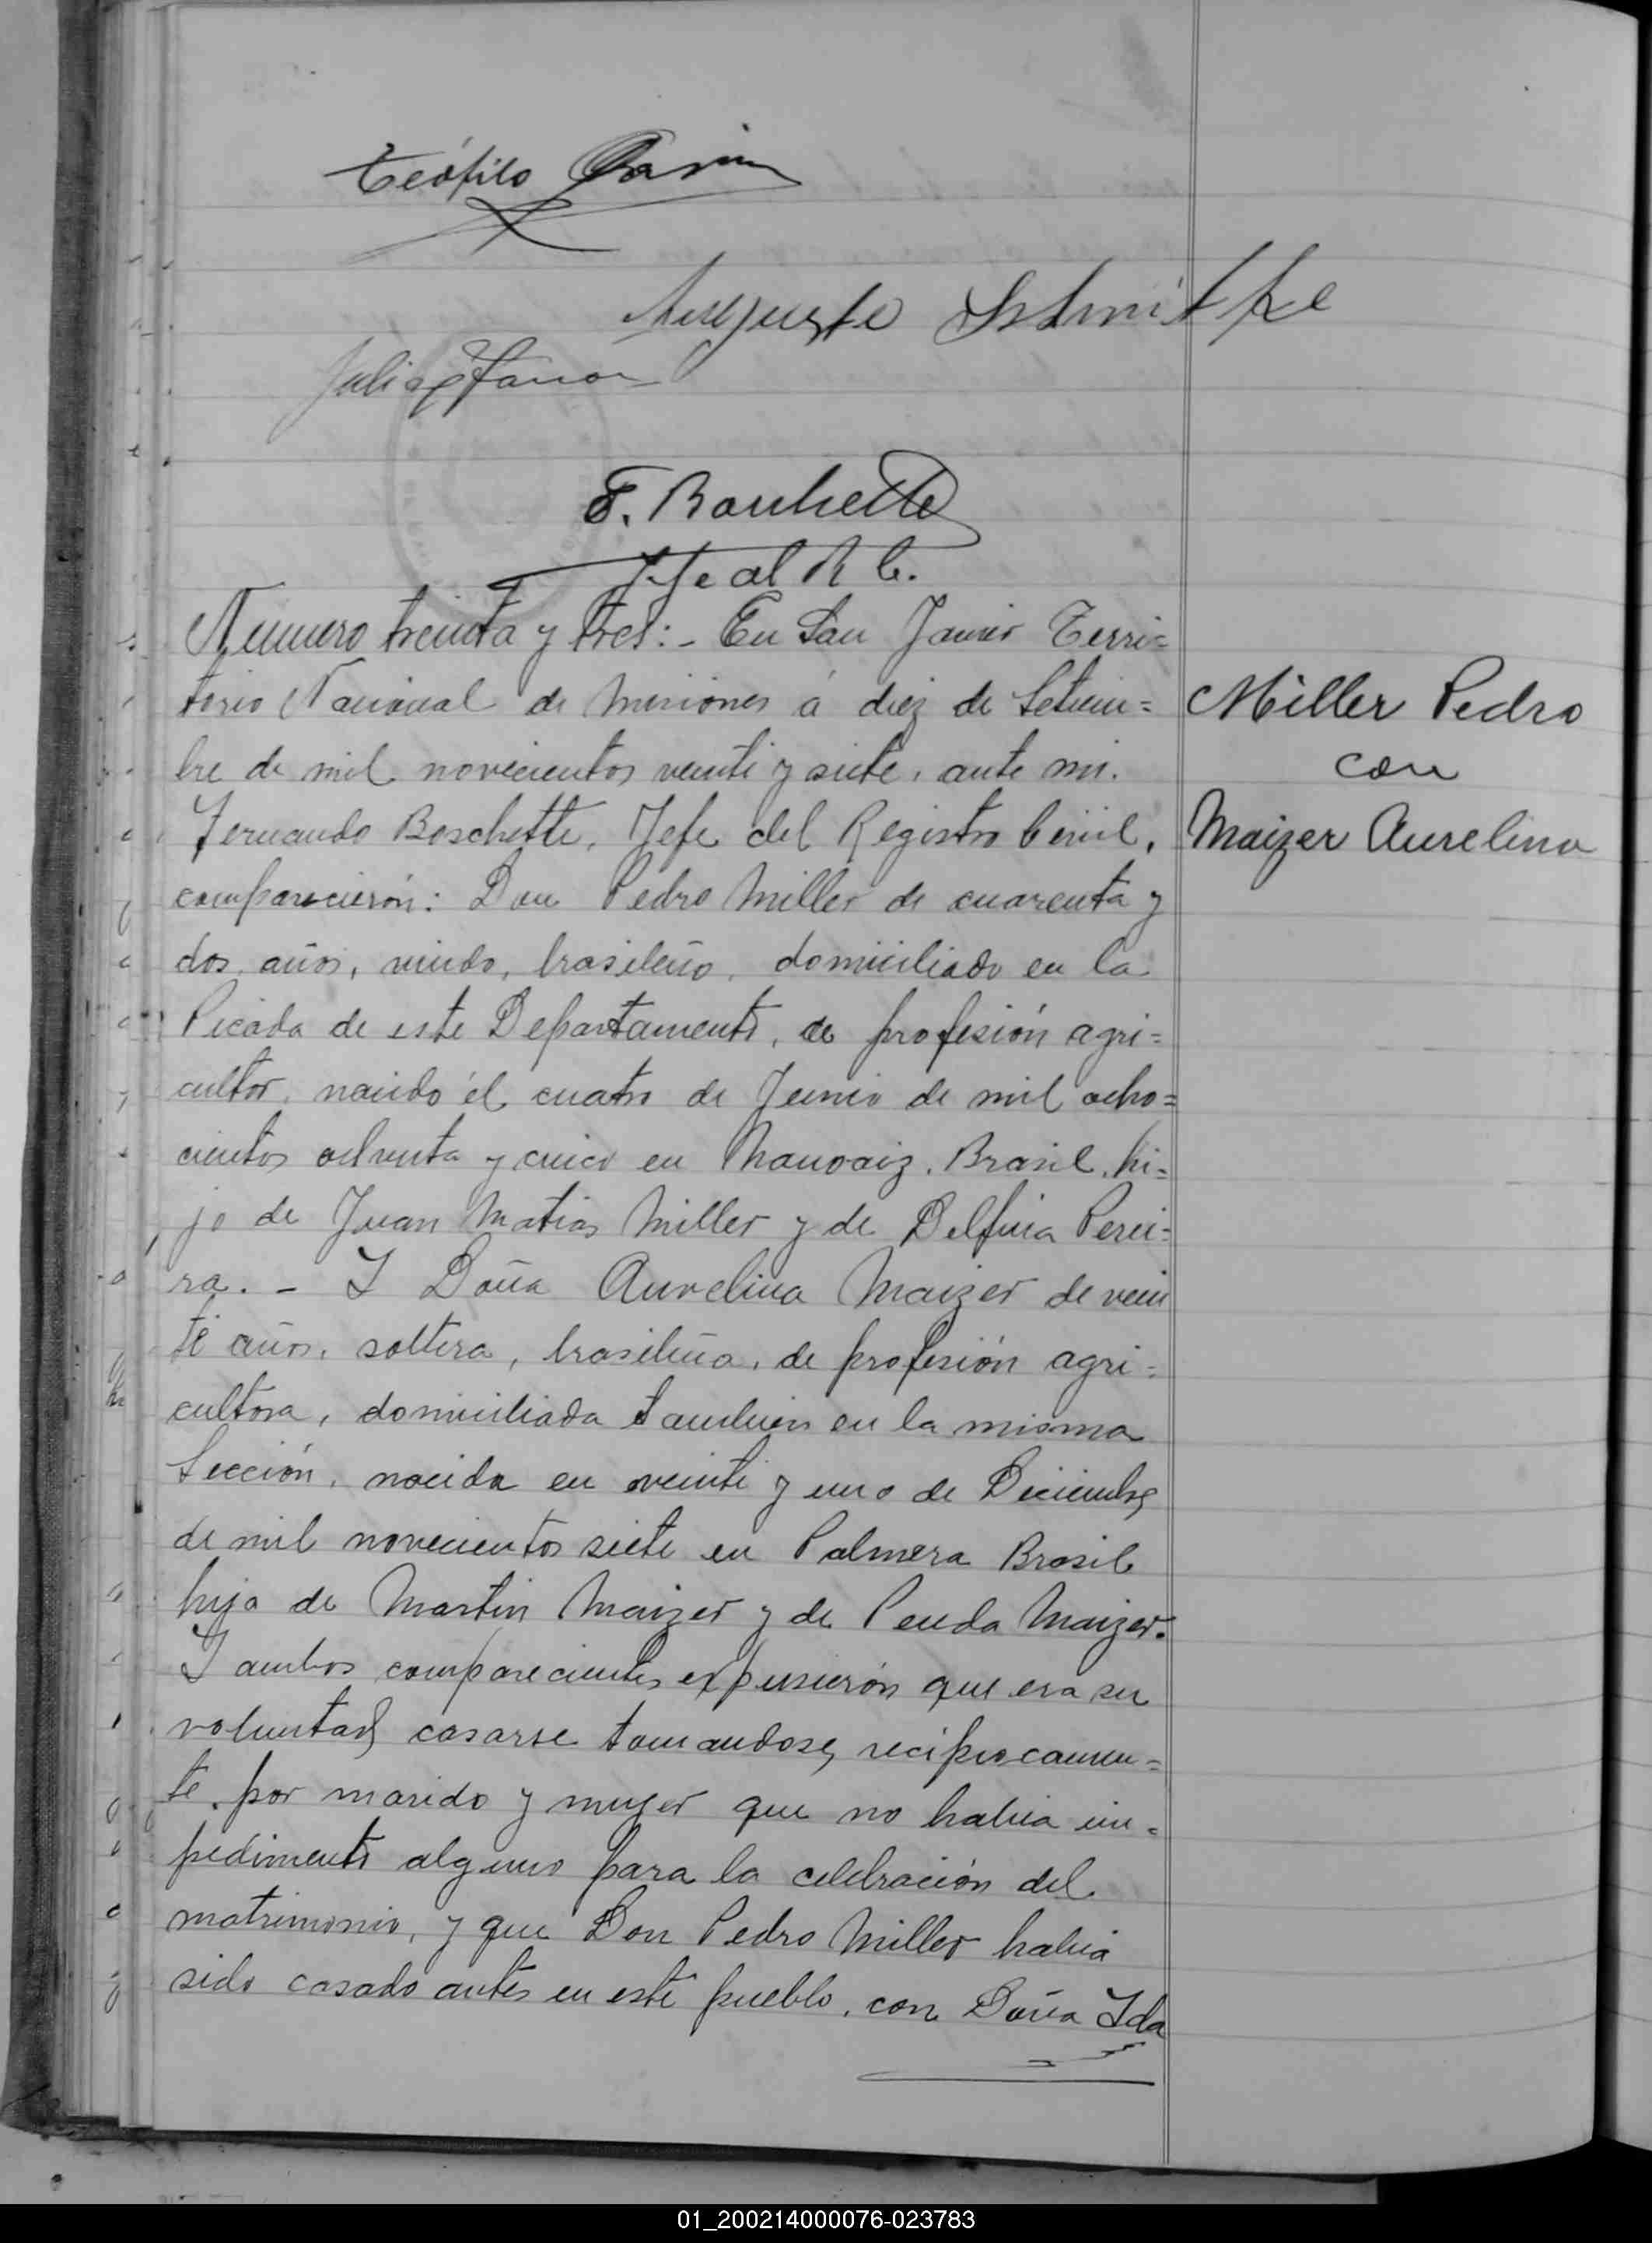 Teófilo
Augusto Schmitke
Julio
F. Boschette
Jefe del R C.
Número treinta y tres:- En San Javier Terri=
torio Nacional de Misiones á diez de Setiem=
bre de mil novecientos veinti y siete, ante mi.
Fernando Boschette, Jefe del Registro Civil,
comparecierón: Don Pedro Miller de cuarenta y
dos años, viudo, brasileño, domiciliado en la
Picada de este Departamento, de profesión agri=
cultor, nacido él cuatro de Junio de mil ocho=
cientos ochenta y cinco en Brasil, hi=
jo de Juan Matias Miller y de Delfina Perei=
ra. - I Doña Aurelina Maizer de vein
te años, soltera, brasileña, de profesión agri=
cultora, domiciliada tambien en la misma
Sección, nacida en veinti y uno de Diciembre
de mil novecientos siete en Palmera Brasil
hija de Martin Maizer y de Maizer.
I ambos comparecientes expusierón que era su
voluntad casarse tomandose, reciprocamen=
te por marido y mujer que no habia im=
pedimento alguno para la celebración del
matrimonio, y que Don Pedro Miller habia
sido casado antes en este pueblo, con Doña Ida
Miller Pedro
con
Maizer Aurelina
01_200214000076-023783